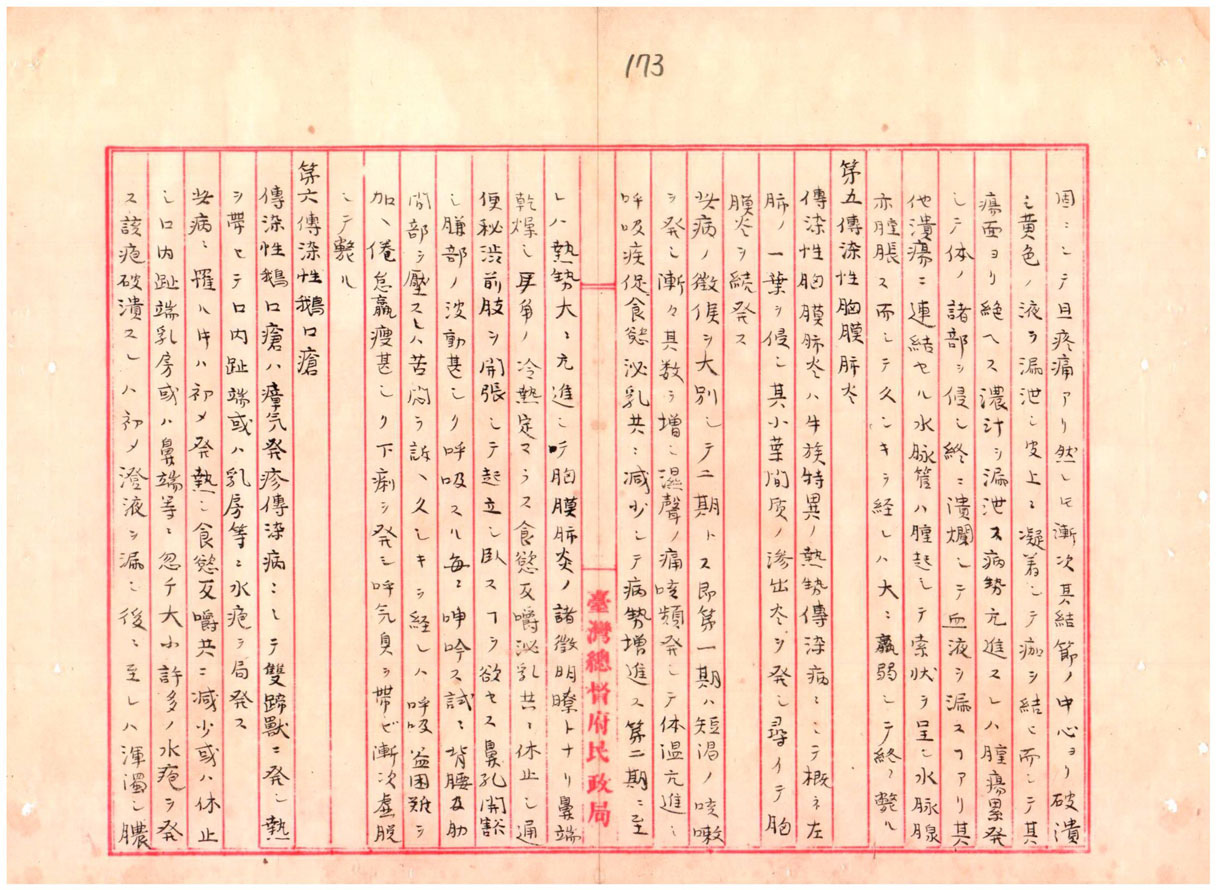 173
固ニシテ且疼痛アリ然レ𪜈漸次其結節ノ中心ヨリ破潰
シ黄色ノ液ヲ漏泄シ皮上ニ凝着シテ痂ヲ結ヒ而シテ其
瘍面ヨリ絶ヘス濃汁ヲ漏泄ス病勢亢進スレハ腫瘍累発
シテ体ノ諸部ヲ侵シ終ニ潰爛シテ血液ヲ漏スヿアリ其
他潰瘍ニ連結セル水脉管ハ腫起シテ索状ヲ呈シ水脉腺
亦腫脹ス而シテ久シキヲ経レハ大ニ羸弱シテ終ニ斃ル
第五傳染性胸膜肺炎
傳染性胸膜肺炎ハ牛族特異ノ熱勢傳染病ニシテ概ネ左
肺ノ一葉ヲ侵シ其小葉間质ノ滲出炎ヲ発シ尋イテ胸
膜炎ヲ続発ス
此病ノ徴候ヲ大別シテ二期トス即第一期ハ短渇ノ咳嗽
ヲ発シ漸々其数ヲ増シ濕聲ノ痛咳頻発シテ体温亢進シ
呼吸疾促食慾泌乳共ニ減少シテ病勢増進ス第二期ニ至
臺灣總督府民政局
レハ熱勢大ニ亢進シテ胸膜肺炎ノ諸徴明瞭トナリ鼻端
乾燥シ耳角ノ冷熱定マラス食慾反嚼泌乳共ニ休止シ通
便秘渋前肢ヲ開張シテ起立シ臥スヿヲ欲セス鼻孔開豁
シ膁部ノ波動甚シク呼吸スル毎ニ呻吟ス試ニ背腰及肋
間部ヲ壓スレハ苦悶ヲ訴ヘ久シキヲ経レハ呼吸益困難ヲ
加ヘ倦怠羸痩甚シク下痢ヲ発シ呼気臭ヲ帯ビ漸次虚脱
シテ斃ル
第六傳染性鵝口瘡
傳染性鵝口瘡ハ瘴気発疹傳染病ニシテ雙蹄獸ニ発シ熱
ヲ帯ヒテ口内趾端或ハ乳房等ニ水疱ヲ局発ス
此病ニ罹ル片ハ初メ発熱シ食慾反嚼共ニ減少或ハ休止
シ口内趾端乳房或ハ鼻端等ニ忽チ大小許多ノ水疱ヲ発
ス該疱破潰スレハ初メ澄液ヲ漏シ後ニ至レハ渾濁シ膿